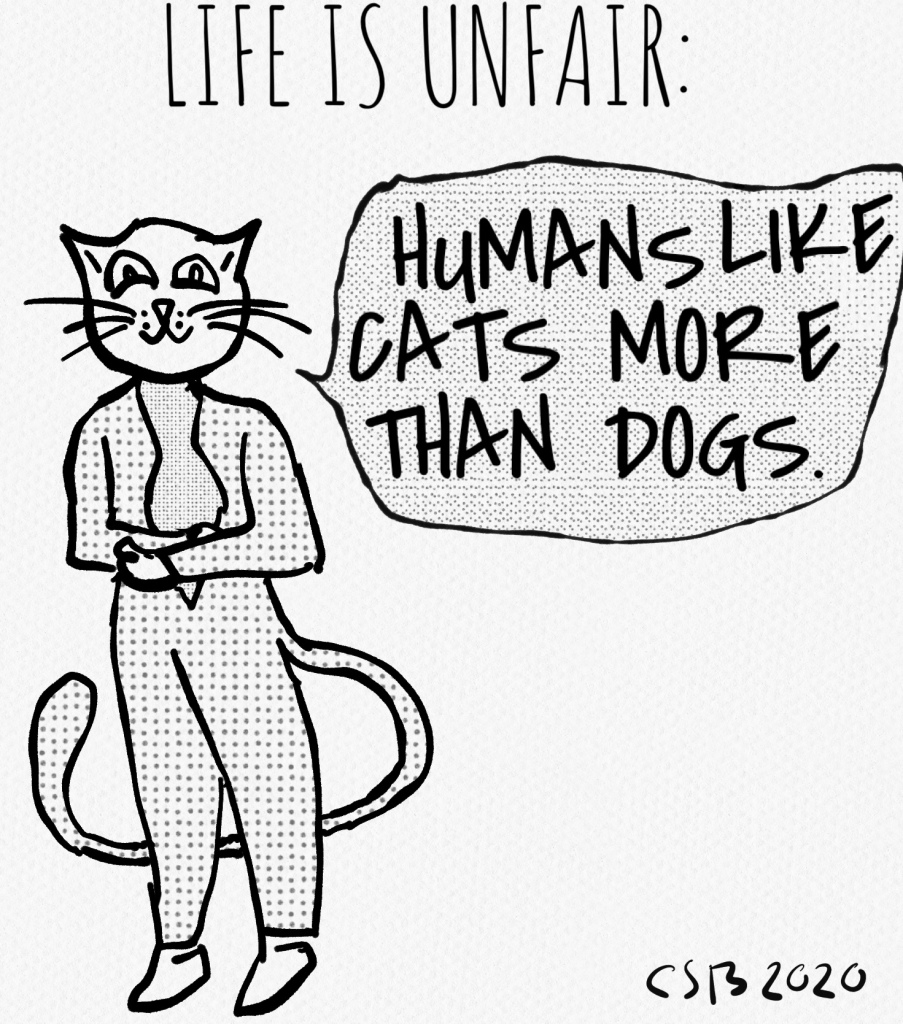 LIFE IS UNFAIR:
HUMANS LIKE
CATS MORE
THAN DOGS.
CSB 2020